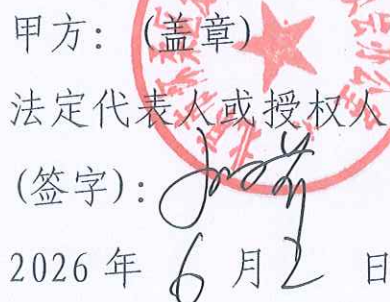 甲方：（盖章）
法定代表人或授权人
(签字)：
2026 年 6 月 2 日